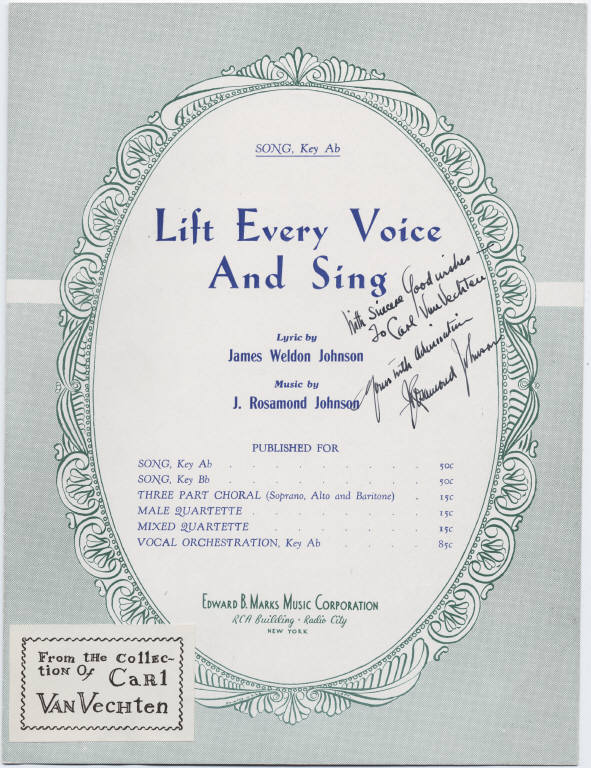 SONG, Key Ab
Lift Every Voice
And Sing
With sincere Good wishes
To Carl Van Vechten
Yours with admiration
J. Rosamond Johnson
Lyric by
James Weldon Johnson
Music by
J. Rosamond Johnson
PUBLISHED FOR
SONG, Key Ab . . . . . . . . . . . 50c
SONG, Key Bb . . . . . . . . . . . 50c
THREE PART CHORAL (Soprano, Alto and Baritone) . 15c
MALE QUARTETTE . . . . . . . . . 15c
MIXED QUARTETTE . . . . . . . . . 15c
VOCAL ORCHESTRATION, Key Ab . . . . . 85c
EDWARD B. MARKS MUSIC CORPORATION
RCA Building · Radio City
NEW YORK
From the Collec-
tion Of Carl
Van Vechten